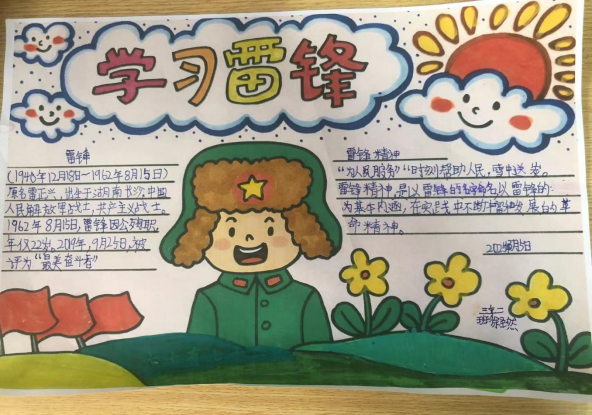 学习雷锋
雷锋
(1940年12月18日—1962年8月15日)
原名雷正兴，出生于湖南长沙，中国
人民解放军战士，共产主义战士。
1962年8月15日，雷锋因公殉职，
年仅22岁。2019年9月25日，被
评为“最美奋斗者”
雷锋精神
“为人民服务”“时刻帮助人民，
雷锋精神，是以雷锋的名字命名以雷锋的
为基本内涵，在实践中不断
命精神。
三年二
班